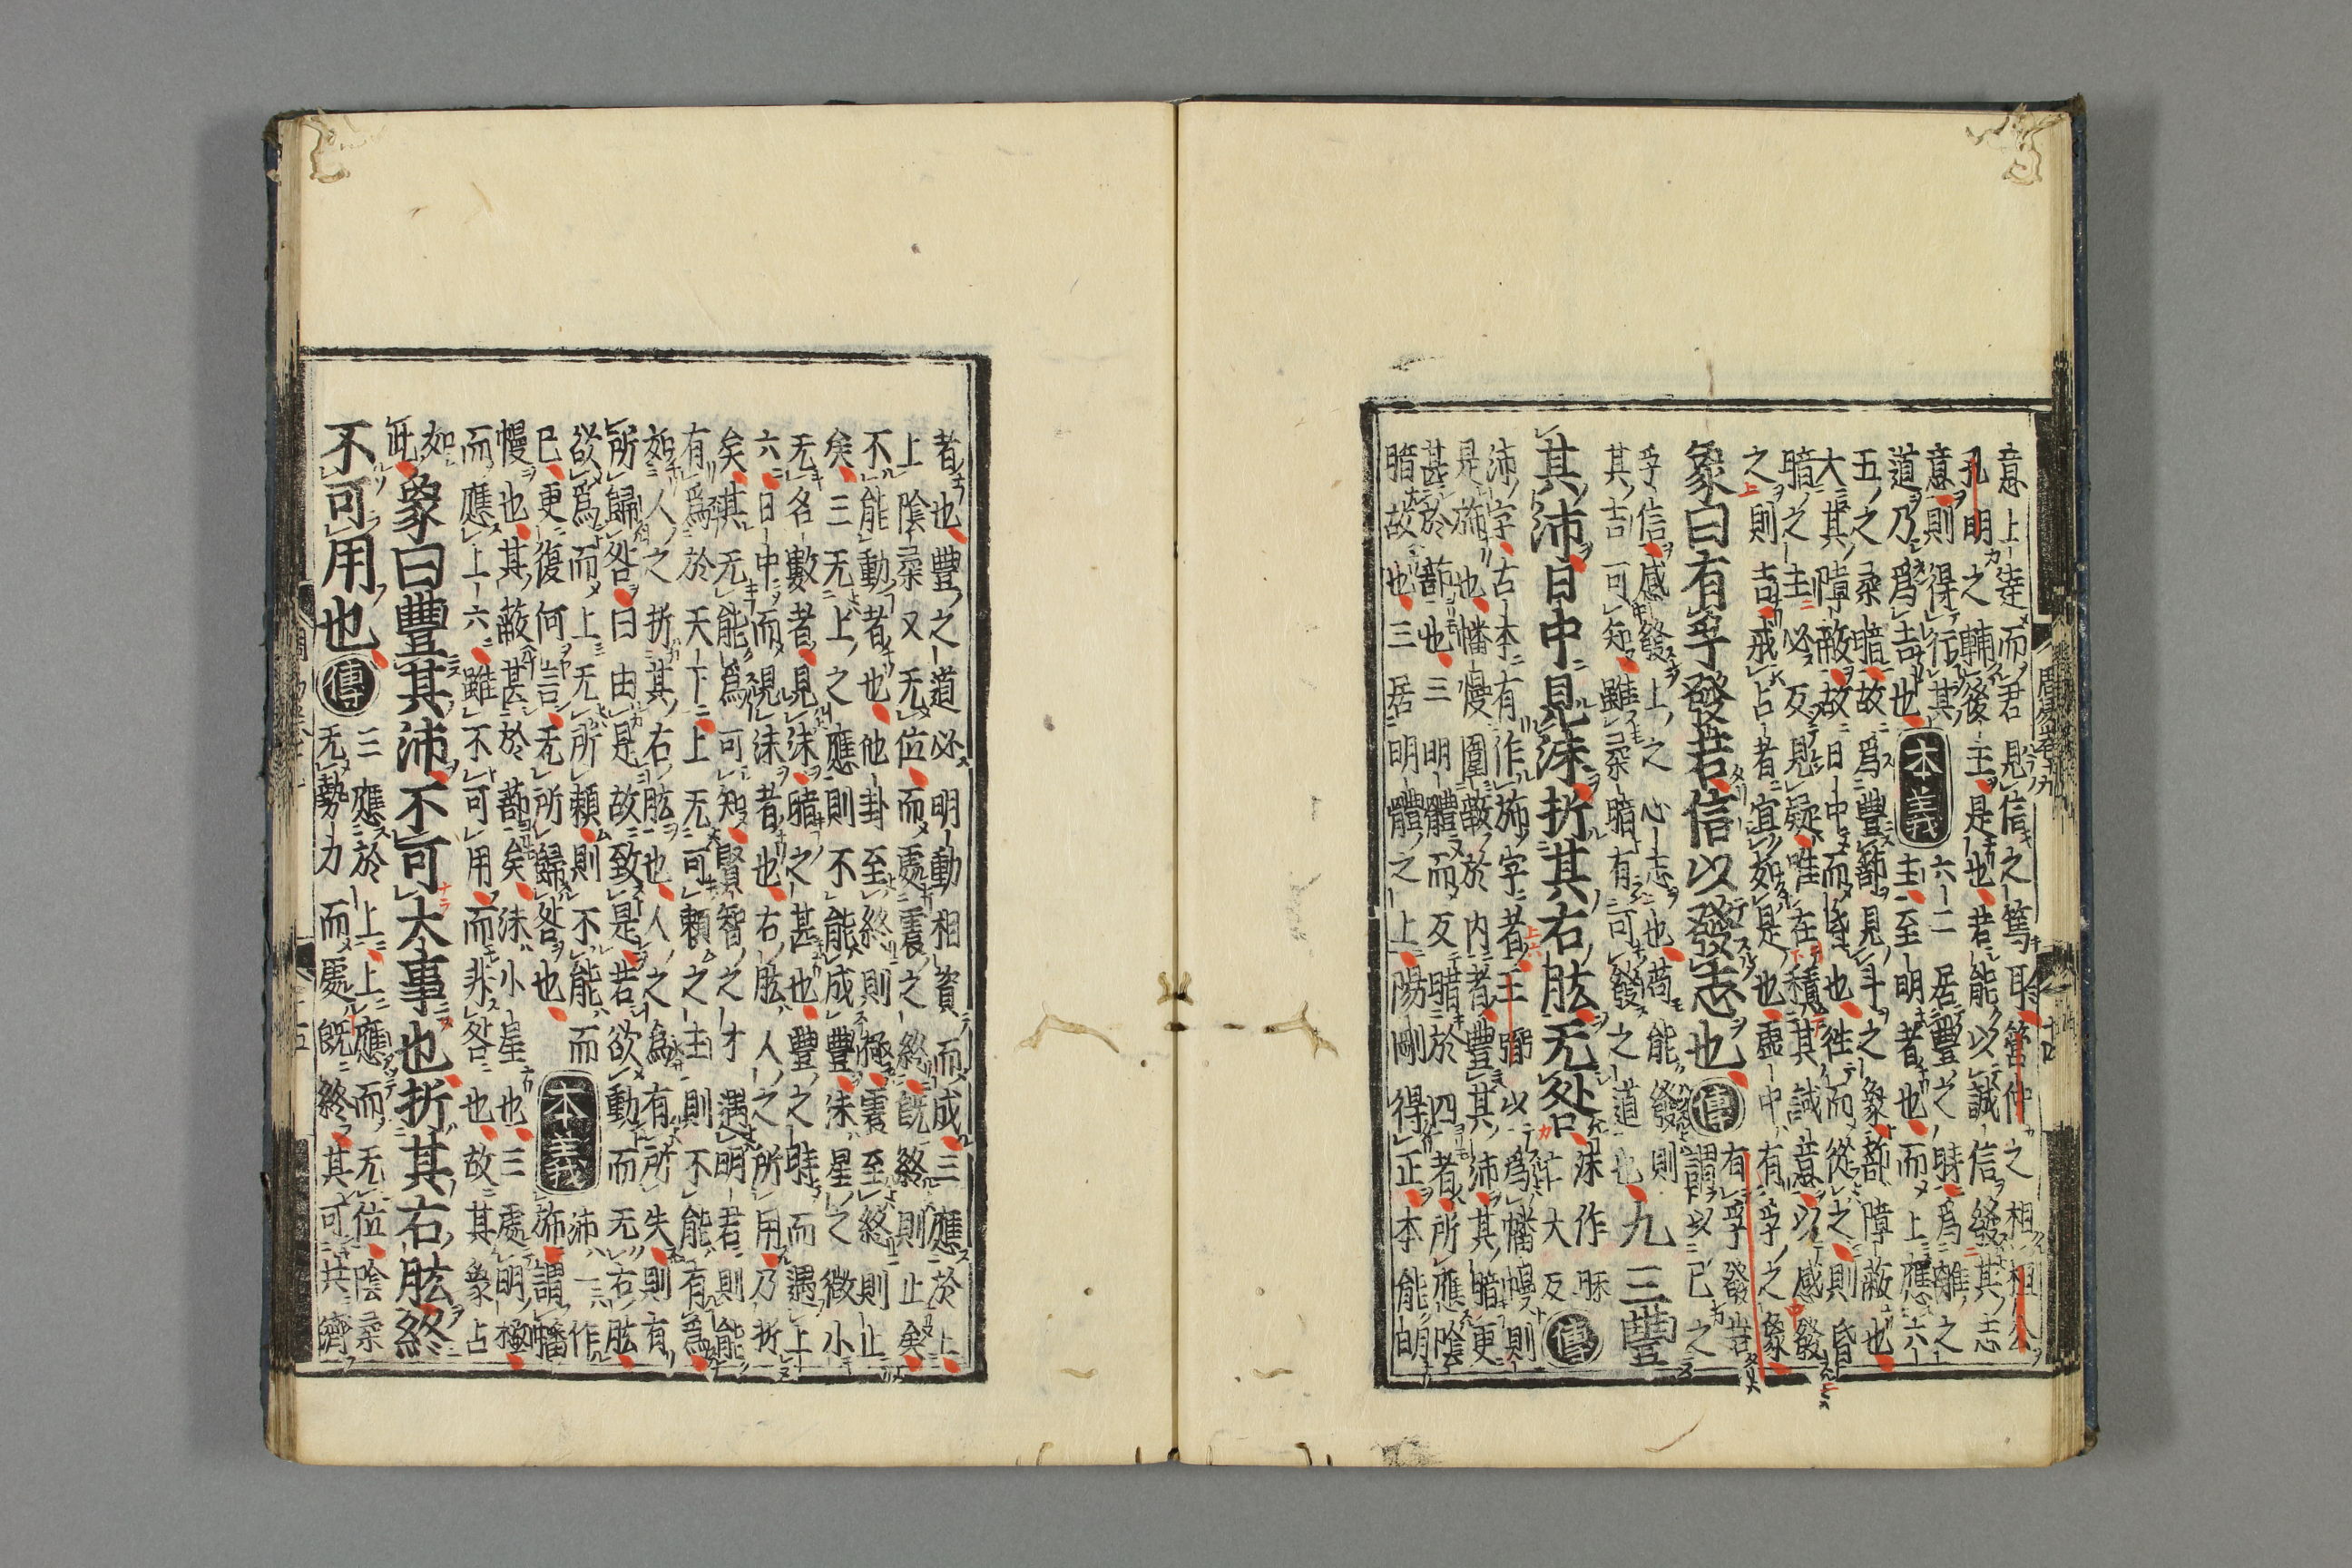 意上達而君見信之篤耳管仲之相桓公
孔明之輔後主是也若能以誠信發其志
意則得行其
道乃爲吉也
本義
六二居豐之時爲離之
主至明者也而上應六
五之柔暗故爲豐蔀見斗之象蔀障蔽也
大其障蔽故日中而昏也徃而從之則昏
暗之主必反見疑唯在積其誠意以感發
之則吉戒占者宜如是也虛中有孚之象
象曰有孚發若信以發志也
傳
有孚發若
謂以己之
孚信感發上之心志也苟能發則
其吉可知雖柔暗有可發之道也
九三豐
其沛日中見沬折其右肱无咎
沬作昩
亡大反
傳
沛字古本有作旆字者王弼以爲幡幔則
是旆也幡幔圍蔽於内者豐其沛其暗更
甚於蔀也三明體而反暗於四者所應陰
暗故也三居明體之上陽剛得正本能明
者也豐之道必明動相資而成三應於上
上陰柔又无位而處震之終既終則止矣
不能動者也他卦至終則極震至終則止
矣三无上之應則不能成豐沬星之微小
无名數者見沬暗之甚也豐之時而遇上
六日中而見沬者也右肱人之所用乃折
矣其无能爲可知賢智之才遇明君則能
有爲於天下上无可賴之主則不能有爲
如人之折其右肱也人之爲有所失則有
所歸咎曰由是故致是若欲動而无右肱
欲爲而上无所賴則不能而
已更復何言无所歸咎也
本義
沛一作
旆謂幡
幔也其蔽甚於蔀矣沬小星也三處明極
而應上六雖不可用而非咎也故其象占
如
此
象曰豐其沛不可大事也折其右肱終
不可用也
傳
三應於上上應而无位陰柔
无勢力而處既終其可共濟